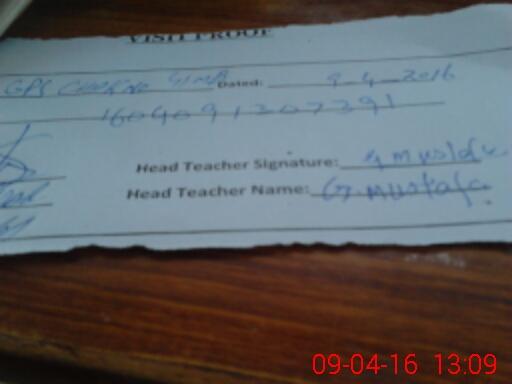 VISIT PROOF
GPS Dated: 9-4-2016
1604091307391
Head Teacher Signature: G Mustafa
Head Teacher Name: G. Mustafa
09-04-16 13:09